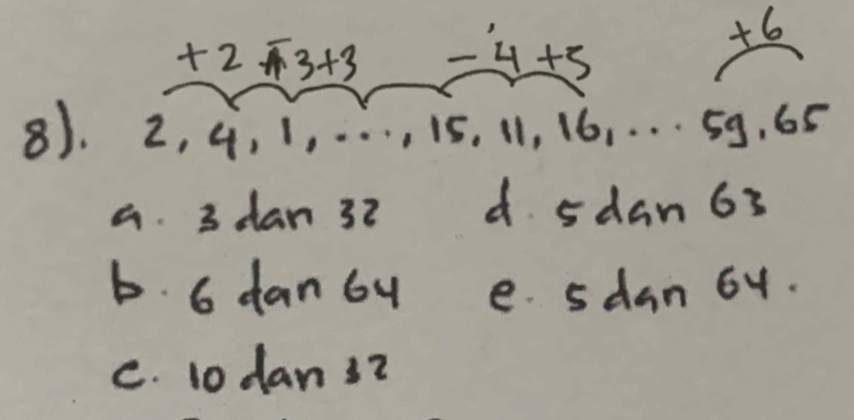 +2 -3+3 -4 +5 +6
8). 2, 4, 1, ..., 15, 11, 16, ... 59, 65
a. 3 dan 32 d. 5 dan 63
b. 6 dan 64 e. 5 dan 64.
c. 10 dan 32